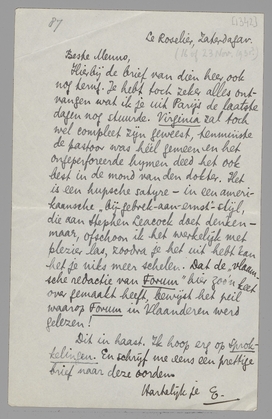 87
[1342]
Le Roselier, Zaterdagav.
[16 of 23 Nov. 1935]
Beste Menno,
Hierbij de brief van dien heer ook
nog terug. Je hebt toch zeker alles ont-
vangen wat ik je uit Parijs de laatste
dagen nog stuurde. Virginia zal toch
wel compleet zijn geweest, tenminste
de pastoor was héél gemeen en het
ongeperforeerde hymen deed het ook
best in de mond van den dokter. Het
is een hupsche satyre – in een ameri-
kaansche, bij gebrek-aan-ernst-stijl,
die aan Stephen Leacock doet denken –
maar, ofschoon ik het werkelijk met
plezier las, zoodra je het uit hebt kan
het je niks meer schelen. Dat de "vlaam-
sche redactie van Forum" hier zoo'n
over gemaakt heeft, bewijst het peil
waarop Forum in Vlaanderen werd
gelezen!
Dit in haast. Ik hoop erg op Sprok-
kelingen. En schrijf me eens een prettige
brief naar deze oorden.
Hartelijk je E.